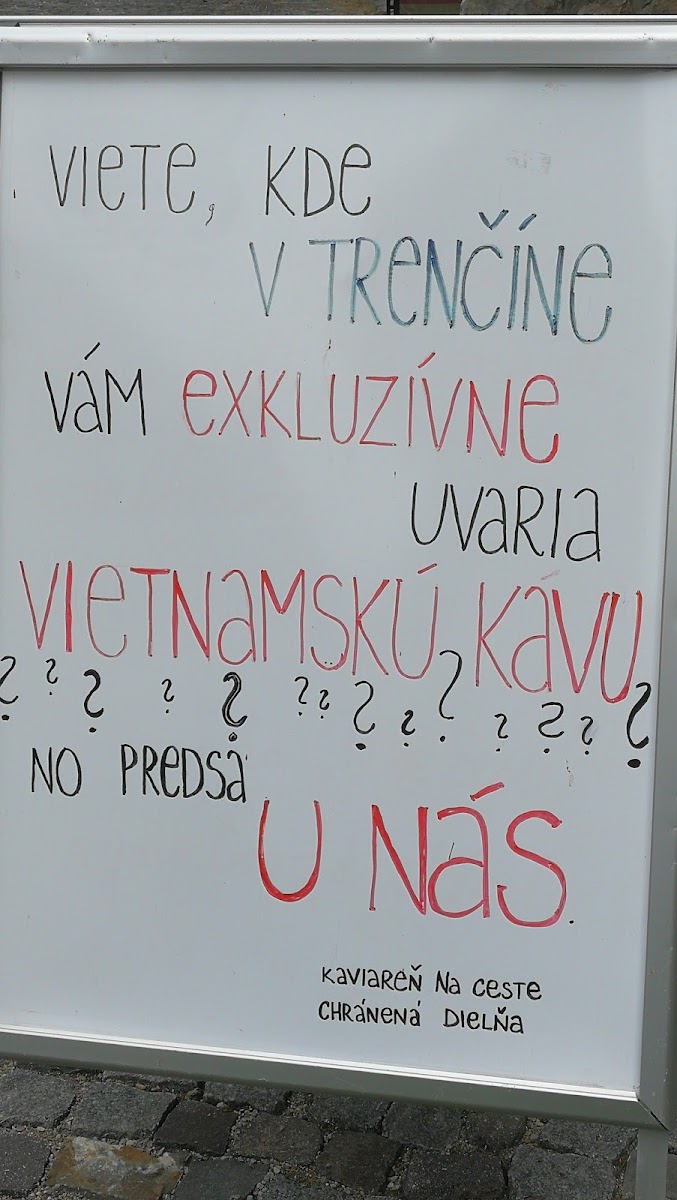 VIETE, KDE
V TRENČÍNE
VÁM EXKLUZÍVNE
UVARIA
VIETNAMSKÚ KÁVU
? ? ? ? ? ? ? ? ? ? ? ? ? ?
NO PREDSA
U NÁS.
KAVIAREŇ NA CESTE
CHRÁNENÁ DIELŇA